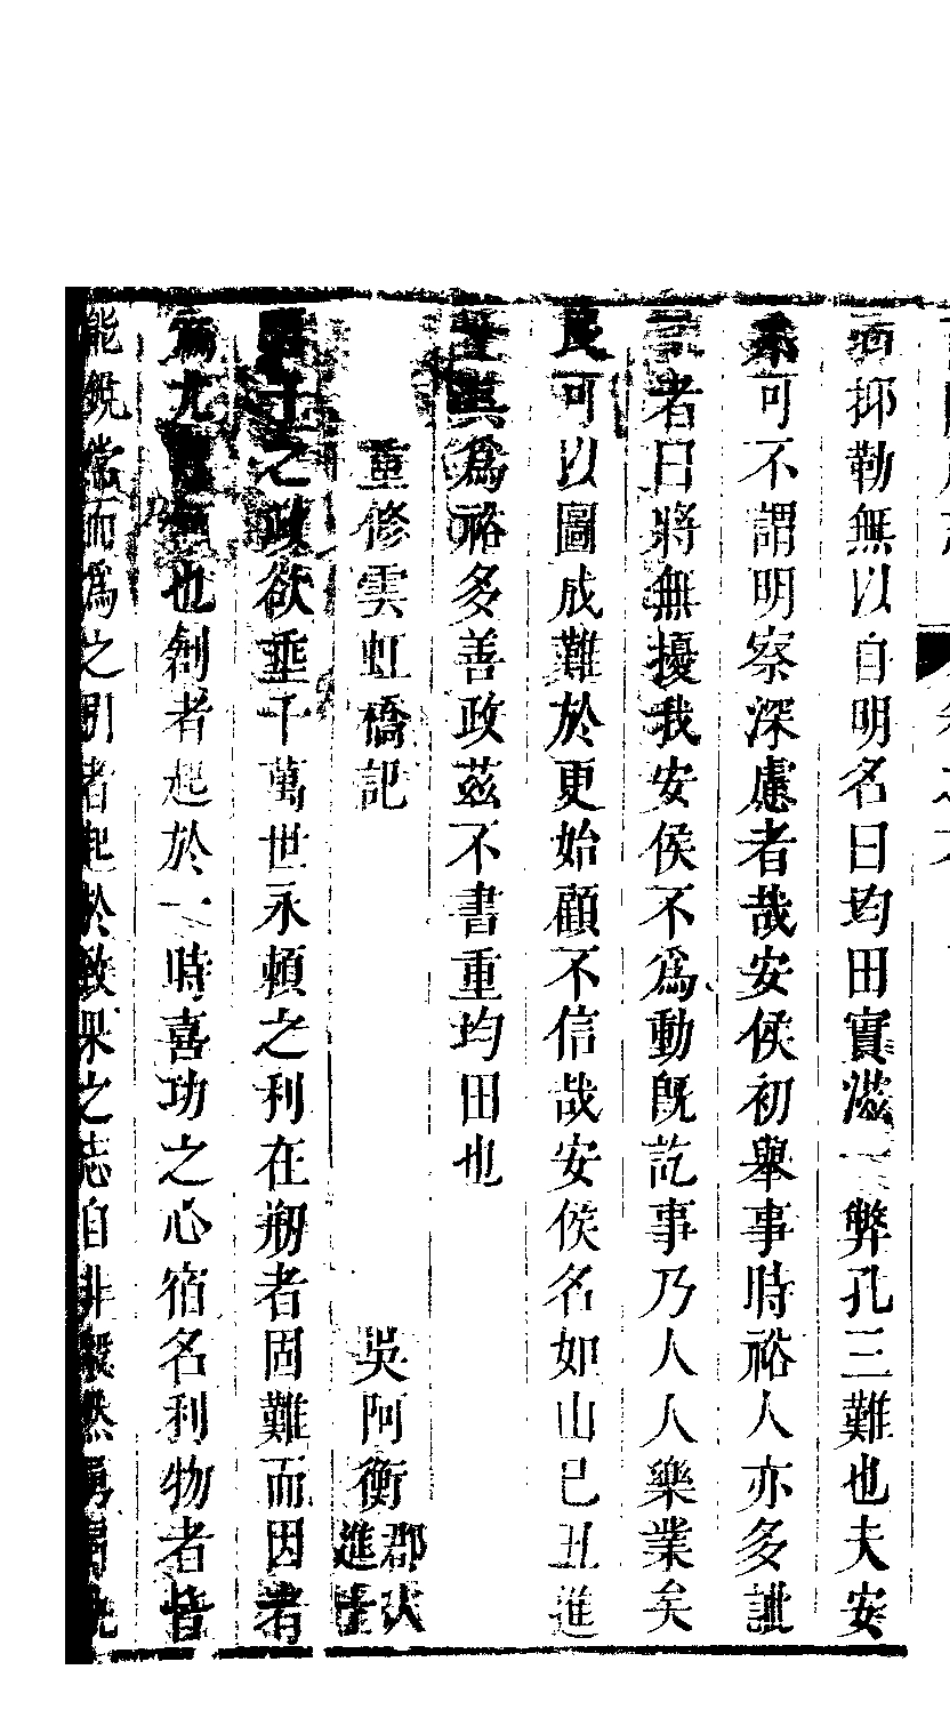 抑勒無以自明名曰均田實滋一弊孔三難也夫安
可不謂明察深慮者哉安侯初舉事時裕人亦多訿
言者曰將無擾我安侯不為動既訖事乃人人樂業矣
民可以圖成難於更始顧不信哉安侯名如山己丑進
士其為裕多善政茲不書重均田也
重修雲虹橋記
吳阿衡 郡人 進士
之政欲垂千萬世永賴之利在剏者固難而因者
為尤也創者起於一時喜功之心宿名利物者皆
能銳然而為之因者起於致果之志自非毅然勇